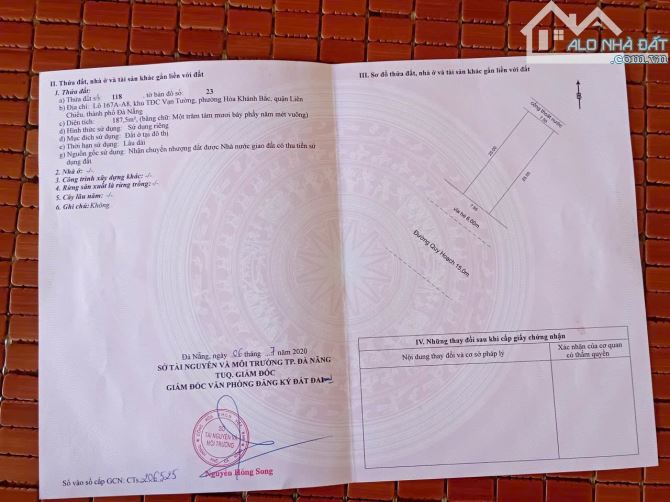 ALO NHÀ ĐẤT
II. Thửa đất, nhà ở và tài sản khác gắn liền với đất
1. Thửa đất:
a) Thửa đất số: 118, tờ bản đồ số: 23
b) Địa chỉ: Lô 167A-A8, khu TĐC Vạn Tường, phường Hòa Khánh Bắc, quận Liên
Chiểu, thành phố Đà Nẵng
c) Diện tích: 187,5m², (bằng chữ: Một trăm tám mươi bảy phẩy năm mét vuông)
d) Hình thức sử dụng: Sử dụng riêng
đ) Mục đích sử dụng: Đất ở tại đô thị
e) Thời hạn sử dụng: Lâu dài
g) Nguồn gốc sử dụng: Nhận chuyển nhượng đất được Nhà nước giao đất có thu tiền sử
dụng đất
2. Nhà ở: -/-
3. Công trình xây dựng khác: -/-
4. Rừng sản xuất là rừng trồng: -/-
5. Cây lâu năm: -/-
6. Ghi chú: Không
Đà Nẵng, ngày 06 tháng 7 năm 2020
SỞ TÀI NGUYÊN VÀ MÔI TRƯỜNG TP. ĐÀ NẴNG
TUQ. GIÁM ĐỐC
GIÁM ĐỐC VĂN PHÒNG ĐĂNG KÝ ĐẤT ĐAI
SỞ
TÀI NGUYÊN VÀ
MÔI TRƯỜNG
Nguyễn Hồng Song
Số vào sổ cấp GCN: CTs 206525
III. Sơ đồ thửa đất, nhà ở và tài sản khác gắn liền với đất
B
cống thoát nước
7.50
25.00
25.00
7.50
vỉa hè 6.00m
Đường Quy Hoạch 15.0m
IV. Những thay đổi sau khi cấp giấy chứng nhận
Nội dung thay đổi và cơ sở pháp lý
Xác nhận của cơ quan
có thẩm quyền